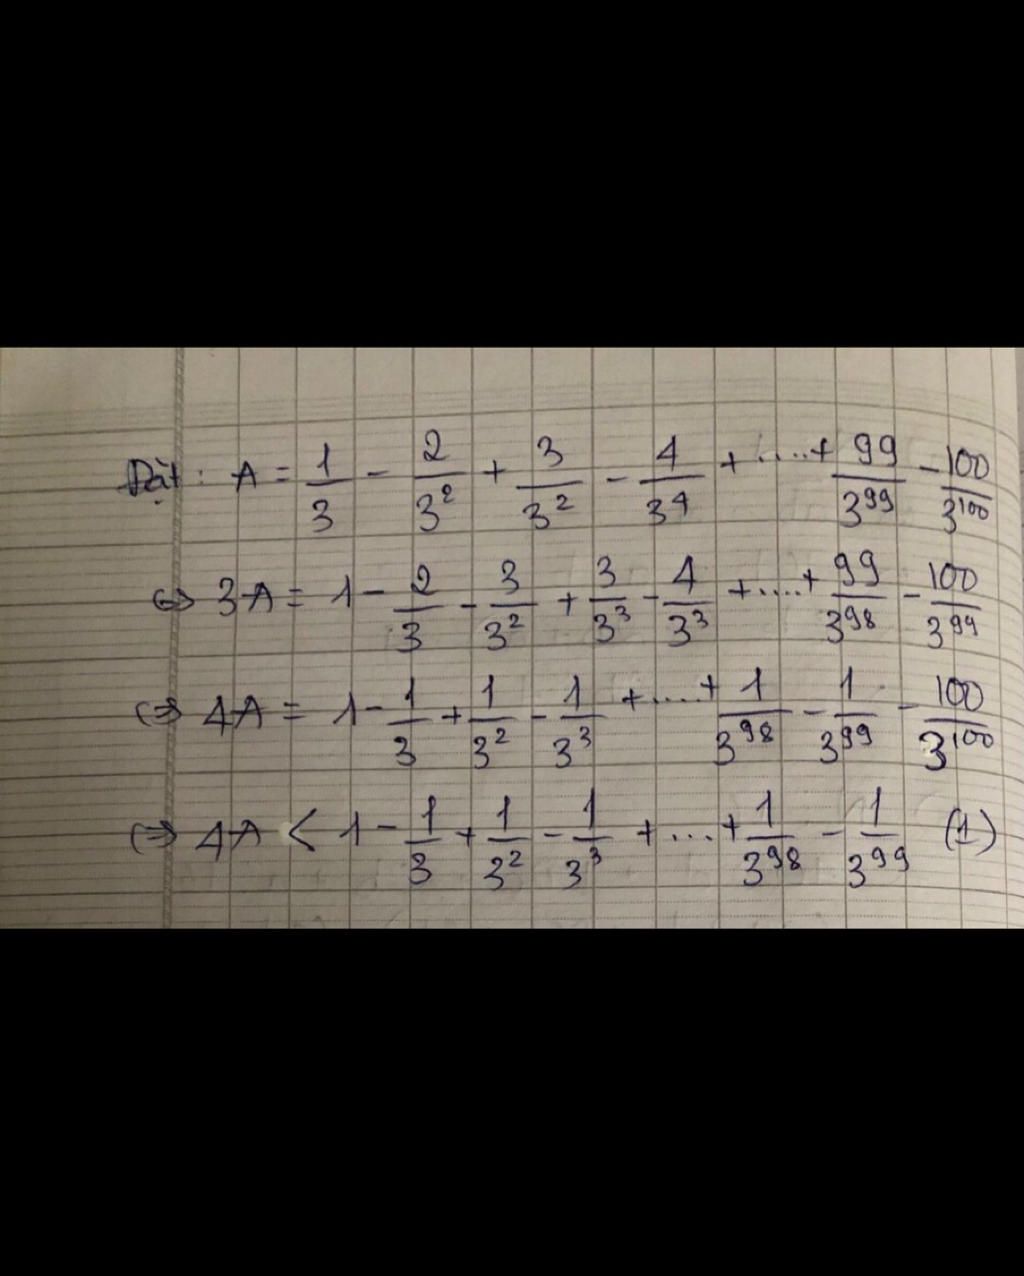 Đặt: A = 1/3 - 2/3² + 3/3² - 4/3⁴ + ....+ 99/3⁹⁹ - 100/3¹⁰⁰
⇔ 3A = 1 - 2/3 - 3/3² + 3/3³ - 4/3³ + ....+ 99/3⁹⁸ - 100/3⁹⁹
⇔ 4A = 1 - 1/3 + 1/3² - 1/3³ + ....+ 1/3⁹⁸ - 1/3⁹⁹ - 100/3¹⁰⁰
⇔ 4A < 1 - 1/3 + 1/3² - 1/3³ + ...+ 1/3⁹⁸ - 1/3⁹⁹ (1)